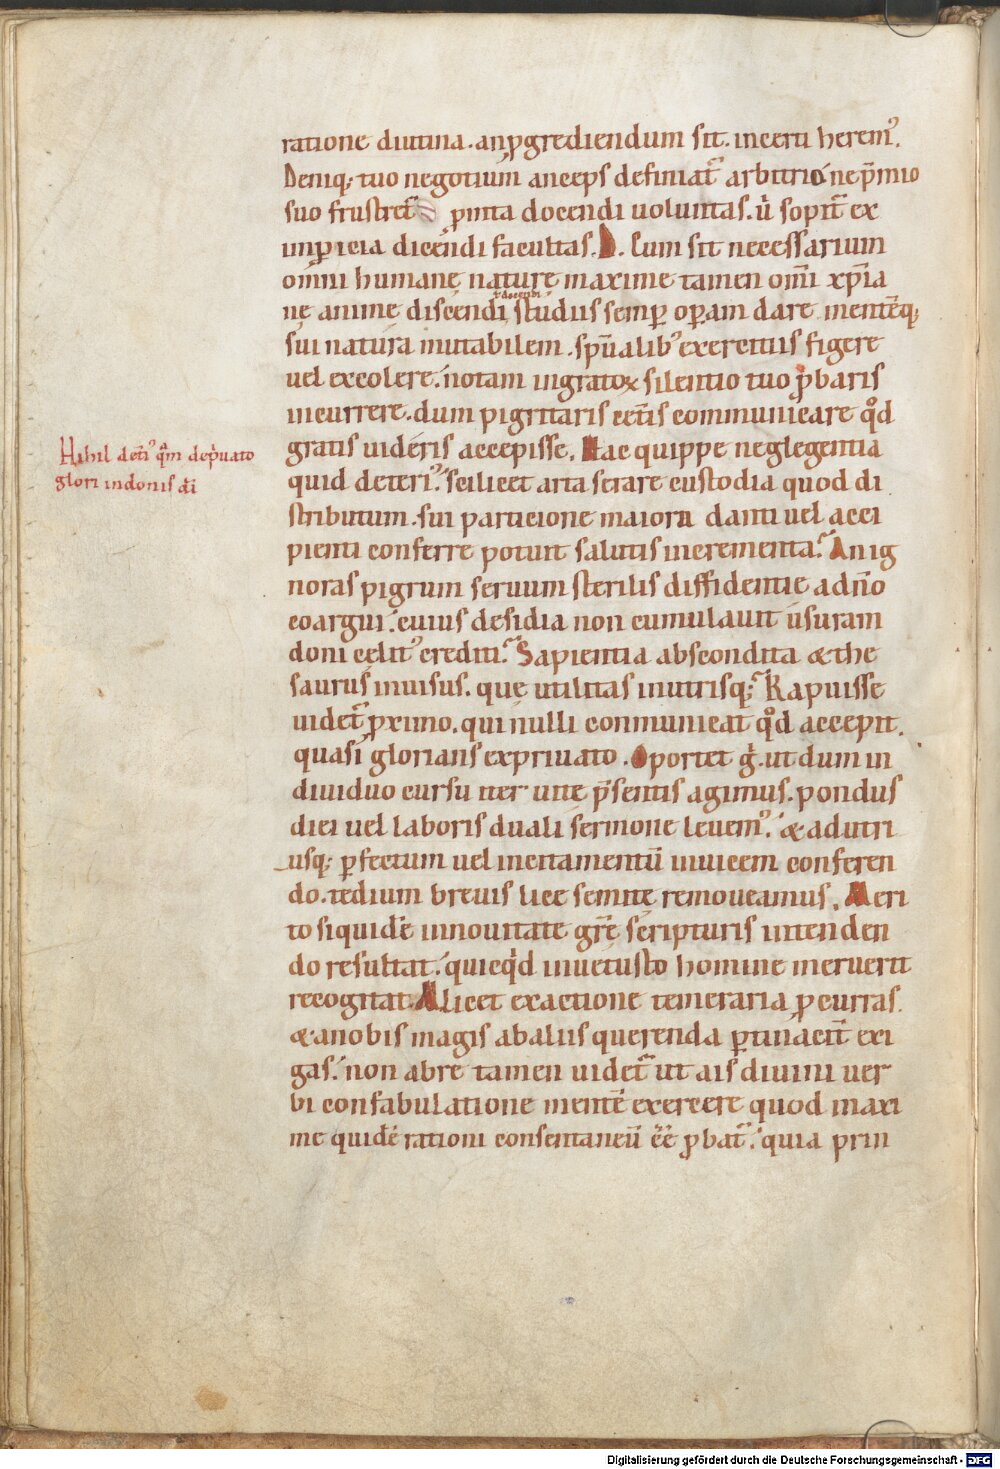 ratione diutina. anꝓgrediendum sit. incerti heremꝰ.
Deniq; tuo negotium anceps definiat᷑ arbitrio. ne p̄mio
suo frustret᷑ ꝓmta docendi uoluntas. ů sopit᷑ ex
imꝑicia dicendi facultas. D. Cum sit necessarium
omni humanę naturę maxime tamen om̄i xp̄ia
nę animę discendi ł docendi studiis semꝑ oꝑam dare mentēq;
sui natura mutabilem. sp̄ualibꝰ exercitiis figere
uel excolere. notam ingratoꝝ silentio tuo ꝓbaris
incurrere. dum pigritaris cet̄is communicare qd̊
gratis uideris accepisse. Hac quippe neglegentia
quid deteriꝰ. scilicet arta serare custodia quod di
stributum. sui particione maiora danti uel acci
pienti conferre potuit salutis incrementa. An ig
noras pigrum seruum sterilis diffidentię a dn̄o
coargui. cuius desidia non cumulauit usuram
doni cęlitꝰ crediti. Sapientia abscondita & the
saurus inuisus. quę utilitas inutrisq; Rapuisse
uidet᷑ ꝓximo. qui nulli conmunicat qd̊ accepit.
quasi glorians ex priuato. Oportet g̊. ut dum in
diuiduo cursu iter uitę p̄sentis agimus. pondus
diei uel laboris duali sermone leuemꝰ. & ad utri
usq; ꝑfectum uel incitamentū inuicem conferen
do. tedium breuis lice semitę remoueamus. Meri
to siquidē innouitate grē scripturis intenden
do resultat. quicq̊d inuetusto homine meruerit
recogitat. A. licet exactione temeraria ꝓcurras.
& anobis magis abaliis querenda ꝑtinacit᷑ exi
gas. non abre tamen uidet᷑ ut ais diuini uer
bi confabulatione mentē exercere quod maxi
me quidē rationi consentaneū ēē ꝓbat᷑. quia prin
Nihil det̄iꝰ qm̄ dep̊uato
glori indonis di̅